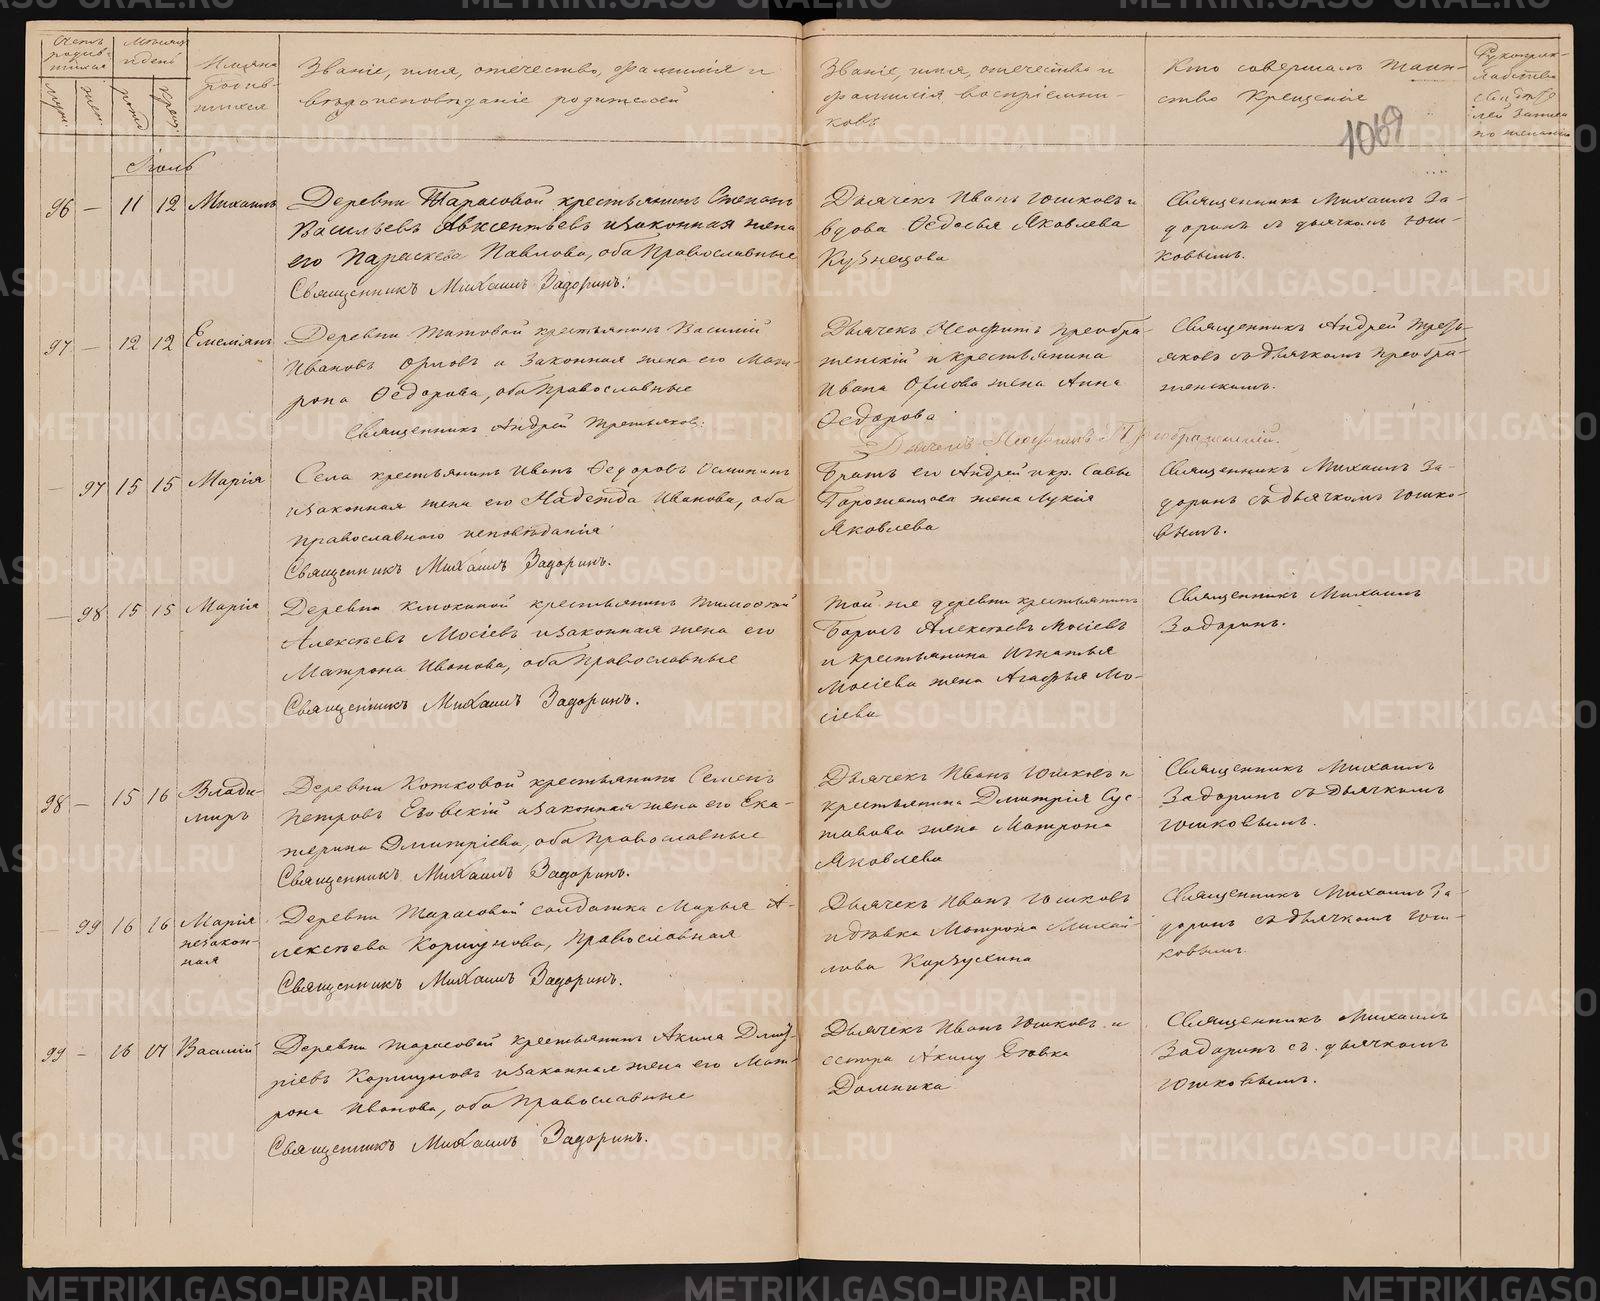 Счетъ родив-шихся
Мѣсяцъ и день
Имяна родив-шихся
Званіе, имя, отечество, фамилія и
вѣроисповѣданіе родителей
Званіе, имя, отечество и
фамилія воспріемни-
ковъ
Кто совершалъ таин-
ство Крещенія
Рукоприк-
ладство
свидѣте
лей записи
по желанію
муж.
жен.
рожд.
крещ.
1069
Іюль
96 — 11 12 Михаилъ
Деревни Тарасовой крестьянинъ Степанъ
Васильевъ Авксентьевъ и законная жена
его Параскева Павлова, оба Православные
Священникъ Михаилъ Задоринъ.
Дьячекъ Иванъ Юшковъ и
вдова Ѳедосья Яковлева
Кузнецова
Священникъ Михаилъ За-
доринъ съ дьячкомъ Юш-
ковымъ.
97 — 12 12 Емеліянъ
Деревни Титовой крестьянинъ Василій
Ивановъ Орловъ и законная жена его Мат-
рона Ѳедорова, оба Православные
Священникъ Андрей Третьяковъ.
Дьячекъ Неофитъ Преобра-
женскій и крестьянина
Ивана Орлова жена Анна
Ѳедорова
Дьячекъ Неофитъ Преображенскій.
Священникъ Андрей Треть-
яковъ съ дьячкомъ Преобра-
женскимъ.
— 97 15 15 Марія
Села крестьянинъ Иванъ Ѳедоровъ Осмининъ
и законная жена его Надежда Иванова, оба
православнаго исповѣданія
Священникъ Михаилъ Задоринъ.
Братъ его Андрей и кр. Саввы
жена Лукія
Яковлева
Священникъ Михаилъ За-
доринъ съ дьячкомъ Юшко-
вымъ.
— 98 15 15 Марія
Деревни Клюкиной крестьянинъ Тимоѳей
Алексѣевъ Мосіевъ и законная жена его
Матрона Иванова, оба Православные
Священникъ Михаилъ Задоринъ.
Той же деревни крестьянинъ
Борисъ Алексѣевъ Мосіевъ
и крестьянина Игнатья
Мосіева жена Агафья Мо-
сіева
Священникъ Михаилъ
Задоринъ.
98 — 15 16 Влади-
миръ
Деревни Кошковой крестьянинъ Семенъ
Петровъ Езовскій и законная жена его Ека-
терина Дмитріева, оба Православные
Священникъ Михаилъ Задоринъ.
Дьячекъ Иванъ Юшковъ и
крестьянина Дмитрія Сус-
лавова жена Матрона
Яковлева
Священникъ Михаилъ
Задоринъ съ дьячкомъ
Юшковымъ.
— 99 16 16 Марія
незакон-
ная
Деревни Тарасовой солдатка Марья А-
лексѣева Коршунова, Православная
Священникъ Михаилъ Задоринъ.
Дьячекъ Иванъ Юшковъ
и дѣвка Матрона Михай-
лова Карзухина
Священникъ Михаилъ За-
доринъ съ дьячкомъ Юш-
ковымъ.
99 — 16 17 Василій
Деревни Тарасовой крестьянинъ Акила Дмит-
ріевъ Коршуновъ и законная жена его Мат-
рона Иванова, оба Православные
Священникъ Михаилъ Задоринъ.
Дьячекъ Иванъ Юшковъ и
сестра Акилы дѣвка
Домника
Священникъ Михаилъ
Задоринъ съ дьячкомъ
Юшковымъ.
METRIKI.GASO-URAL.RU